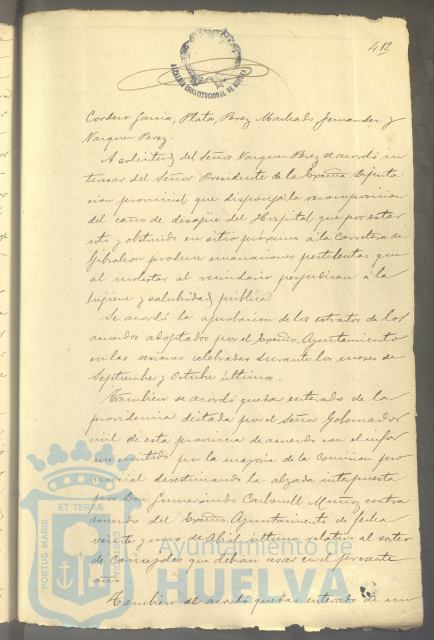 412
ALCALDIA CONSTITUCIONAL DE HUELVA
Cordero Garcia, Plata, Perez Machado Fernandez y
Vazquez Perez.
A solicitud del Señor Vazquez Perez se acordó in
teresar del Señor Presidente de la Excma. Diputa
cion provincial que disponga la recomposicion
del caño de desagüe del Hospital, que por estar
roto y obstruido en sitio próximo á la Carretera de
Gibraleon produce emanaciones pestilentas que
al molestar al vecindario perjudican á la
higiene y salubridad pública.
Se acordó la aprobacion de los extractos de los
acuerdos adoptados por el Excmo. Ayuntamiento
en las sesiones celebradas durante los meses de
Septiembre y Octubre último.
Tambien se acordó quedar enterado de la
providencia dictada por el Señor Gobernador
civil de esta provincia de acuerdo con el infor
me emitido por la mayoria de la Comision pro
vincial desestimando la alzada interpuesta
por Don Gumersindo Carbonell Muñoz contra
acuerdo del Excmo. Ayuntamiento de fecha
veinte y uno de Abril último relativo al sorteo
de Concejales que debian cesar en el presente
año.
Tambien se acordó quedar enterado de un
PORTUS MARIS ET TERRÆ CUSTODIA
Ayuntamiento de
HUELVA